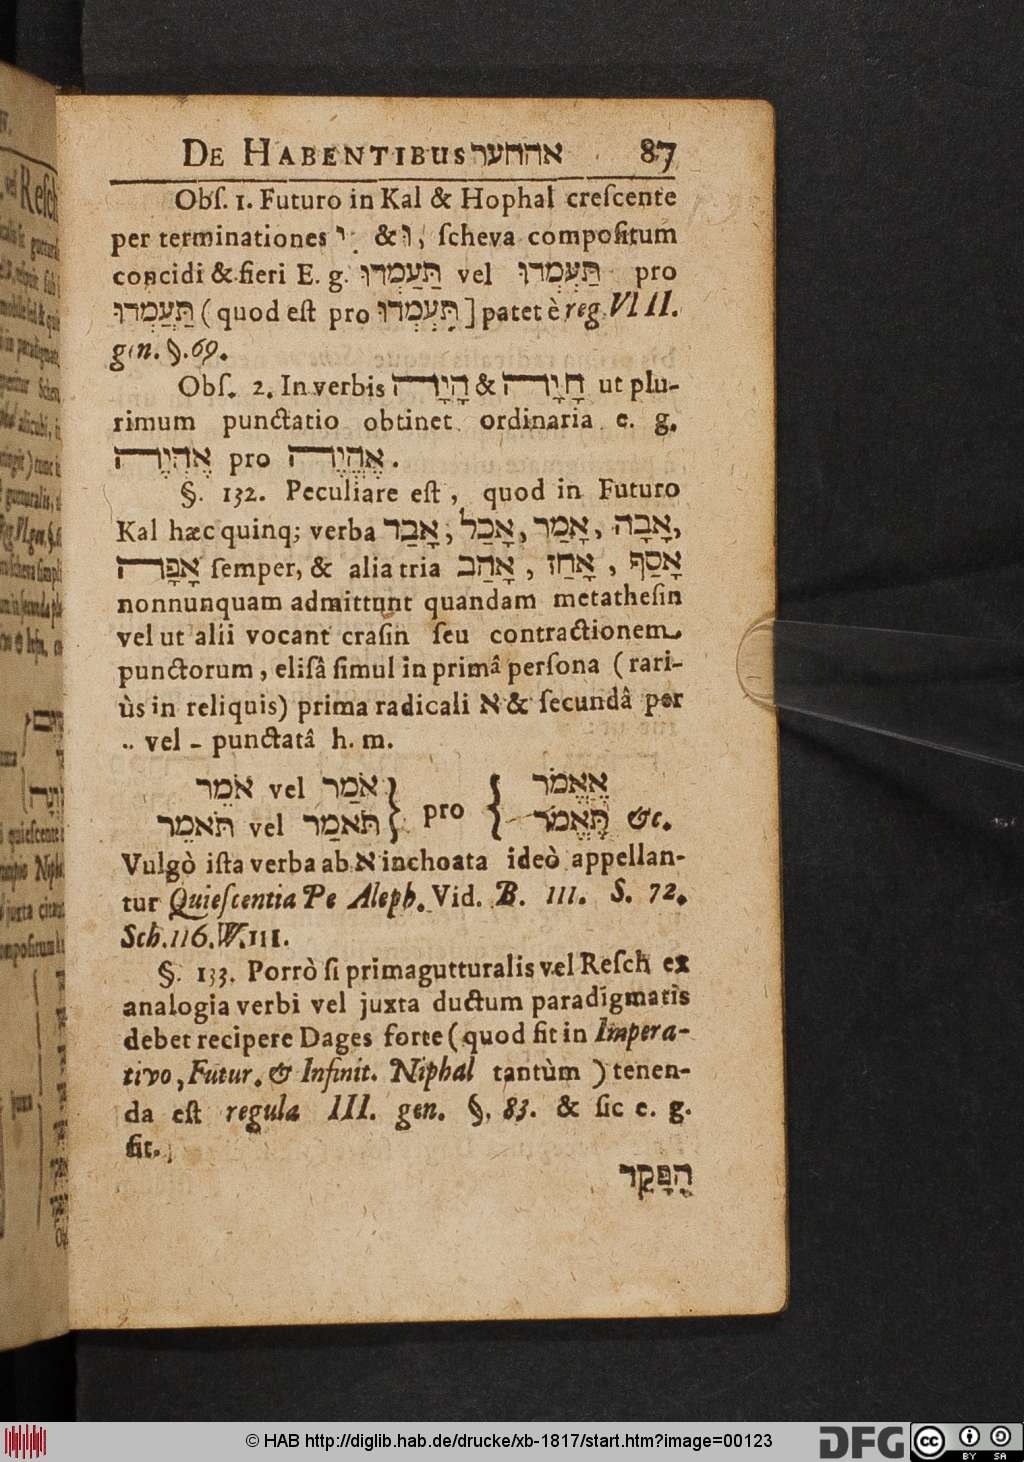 DE HABENTIBUS אההער 87
Obſ. 1. Futuro in Kal & Hophal creſcente
per terminationes י & ו, ſcheva compoſitum
concidi & fieri E. g. תַּעַמְדוּ vel תַּעְמְדוּ pro
תַּעֲמְדוּ (quod eſt pro תִּעְמְדוּ] patet è reg. VIII.
gen. §. 69.
Obſ. 2. In verbis הָיָה & חָיָה ut plu-
rimum punctatio obtinet ordinaria e. g.
אֶהְיֶה pro אֶהֱיֶה.
§. 132. Peculiare eſt, quod in Futuro
Kal hæc quinq; verba אָבַד, אָכַל, אָמַר, אָבָה,
אָפָה ſemper, & alia tria אָהַב, אָחַז, אָסַף
nonnunquam admittunt quandam metatheſin
vel ut alii vocant craſin ſeu contractionem
punctorum, eliſâ ſimul in primâ perſona (rari-
ùs in reliquis) prima radicali א & ſecundâ per
.. vel - punctatâ h. m.
אֹמֵר vel אֹמַר } pro { אֶאֱמֹר
תֹּאמֵר vel תֹּאמַר } תֶּאֱמֹר &c.
Vulgò iſta verba ab א inchoata ideò appellan-
tur Quieſcentia Pe Aleph. Vid. B. 111. S. 72.
Sch. 116. W. 111.
§. 133. Porrò ſi prima gutturalis vel Reſch ex
analogia verbi vel juxta ductum paradigmatis
debet recipere Dages forte (quod fit in Impera-
tivo, Futur. & Infinit. Niphal tantùm) tenen-
da eſt regula III. gen. §. 83. & ſic e. g.
fit.
הִפָּקֵד
© HAB http://diglib.hab.de/drucke/xb-1817/start.htm?image=00123
DFG
cc
BY SA